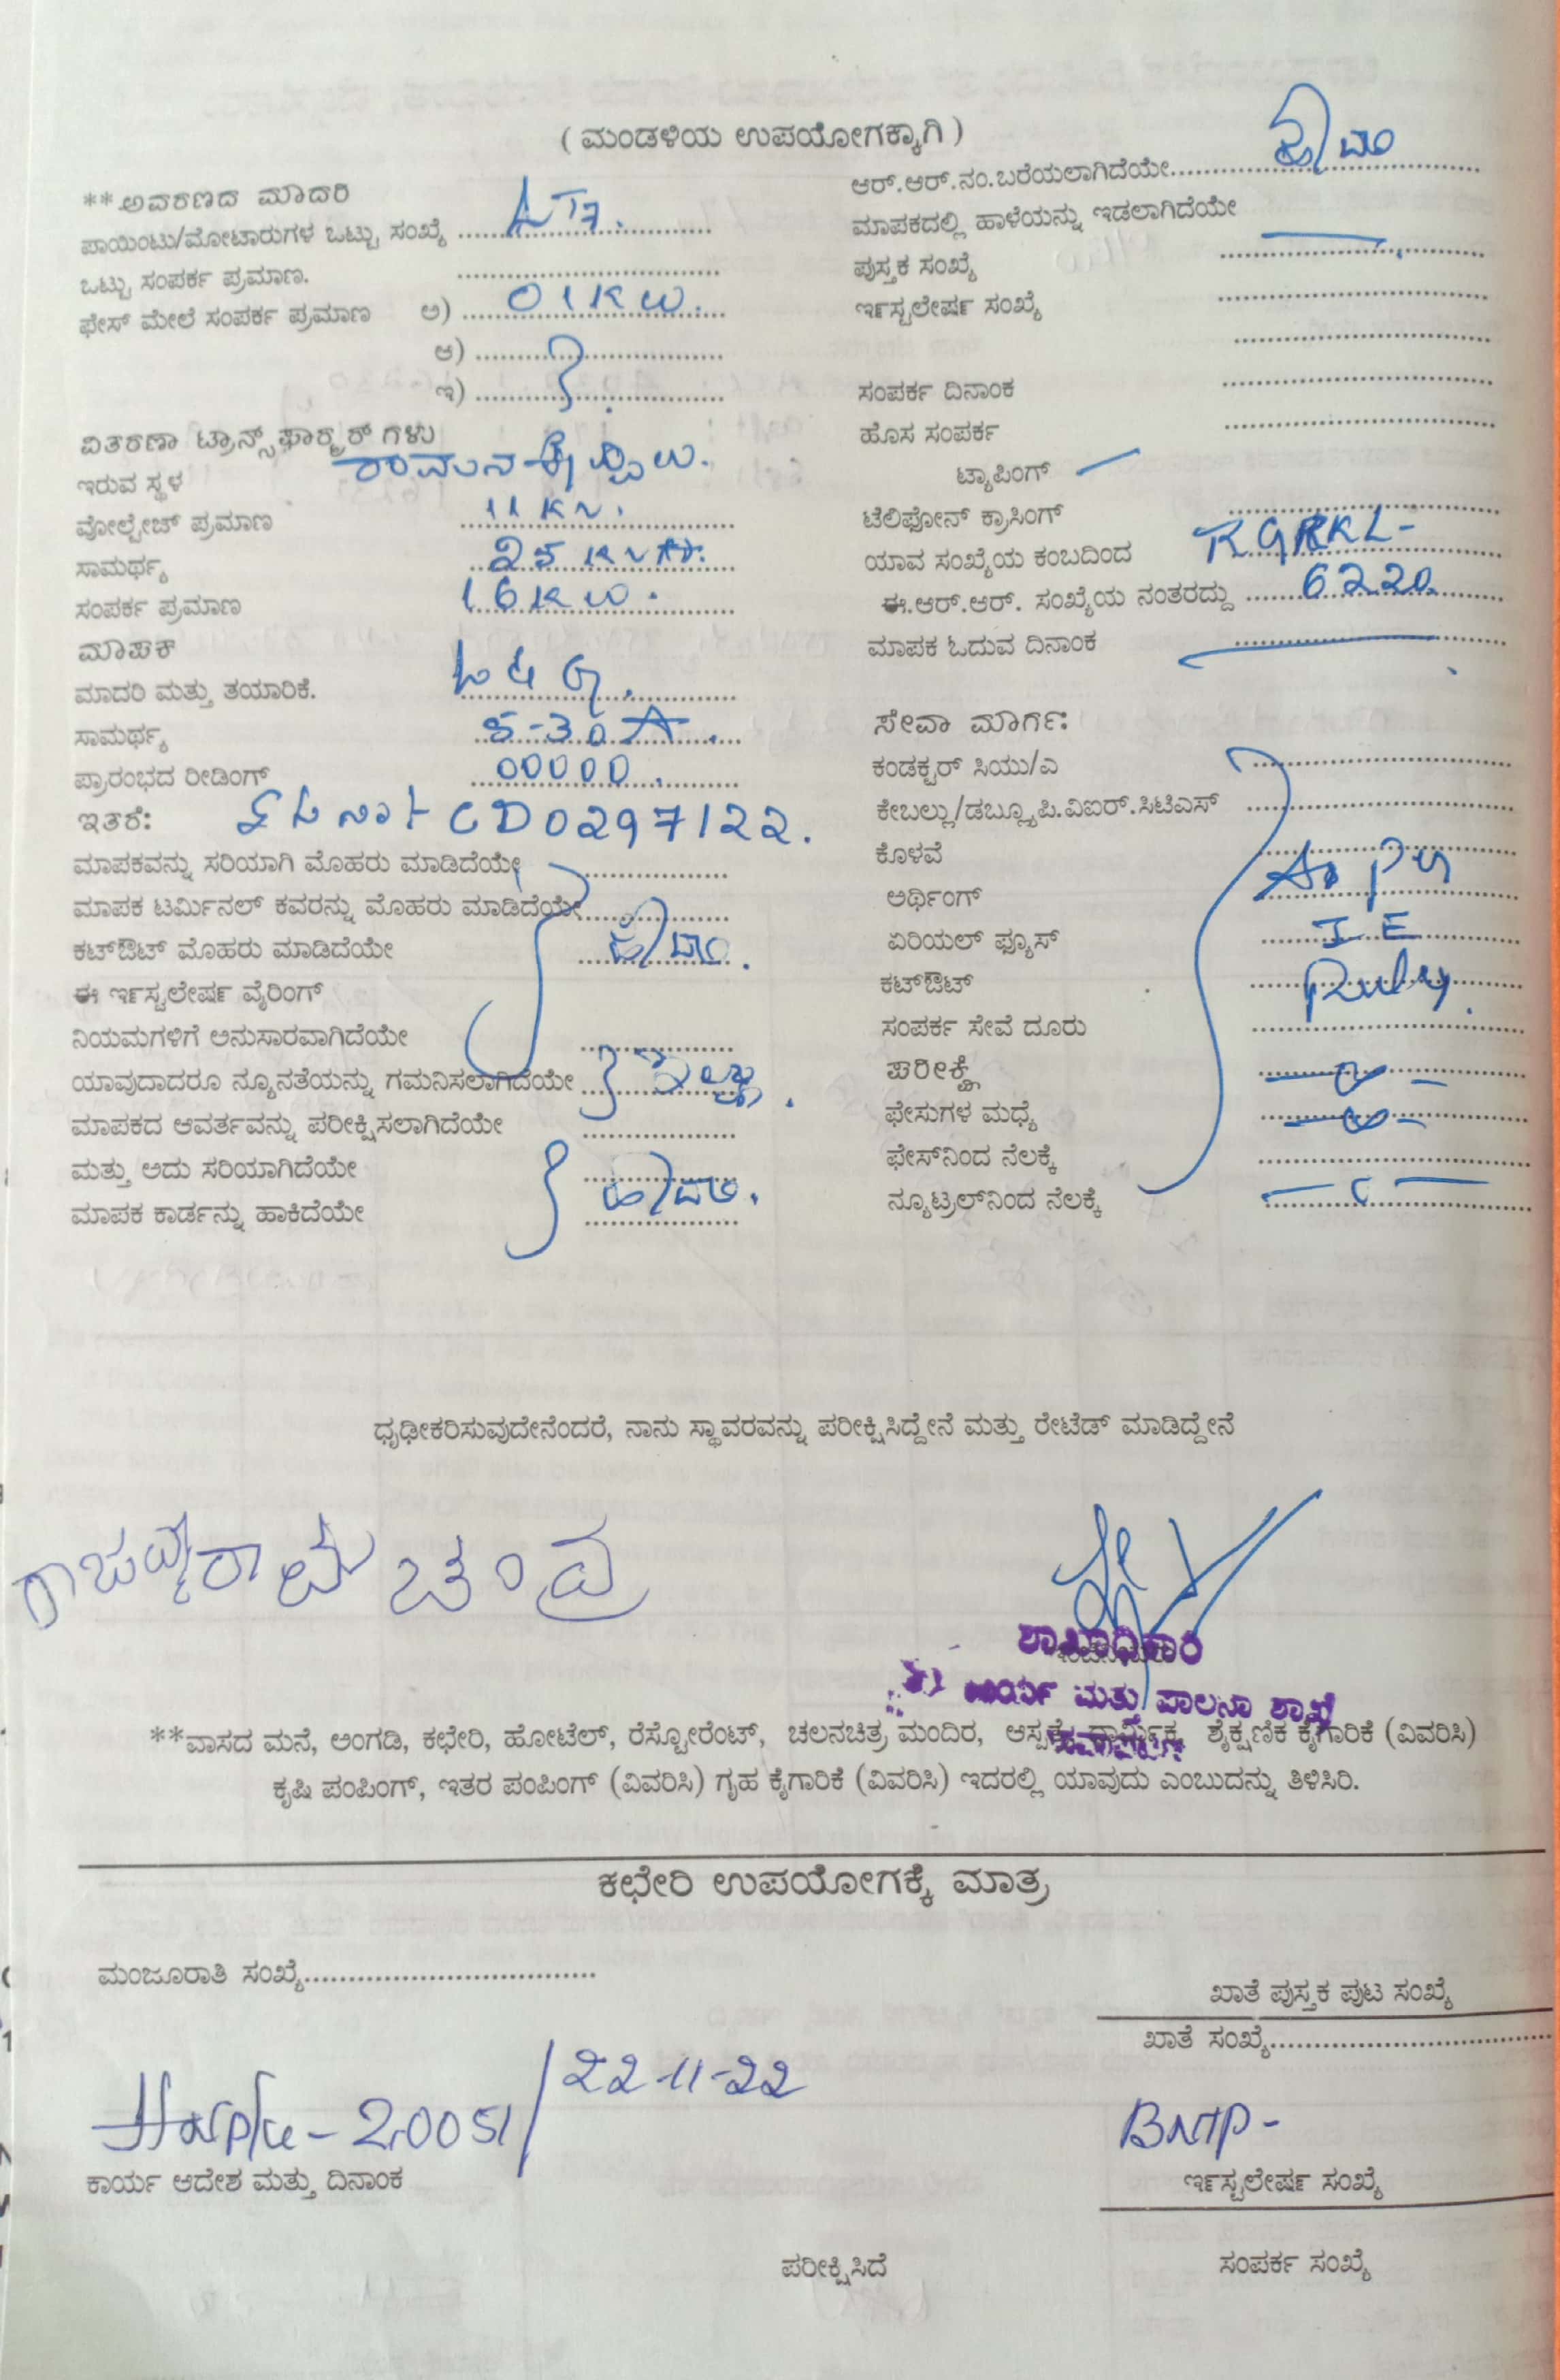 ( ಮಂಡಳಿಯ ಉಪಯೋಗಕ್ಕಾಗಿ )
**ಆವರಣದ ಮಾದರಿ
ಪಾಯಿಂಟು/ಮೋಟಾರುಗಳ ಒಟ್ಟು ಸಂಖ್ಯೆ LT7.
ಒಟ್ಟು ಸಂಪರ್ಕ ಪ್ರಮಾಣ.
ಫೇಸ್ ಮೇಲೆ ಸಂಪರ್ಕ ಪ್ರಮಾಣ ಅ) 01KW.
ಆ)
ಇ)
ವಿತರಣಾ ಟ್ರಾನ್ಸ್‌ಫಾರ್ಮರ್ ಗಳು
ಇರುವ ಸ್ಥಳ
ವೋಲ್ಟೇಜ್ ಪ್ರಮಾಣ 11KV.
ಸಾಮರ್ಥ್ಯ 25KVA.
ಸಂಪರ್ಕ ಪ್ರಮಾಣ 16KW.
ಮಾಪಕ
ಮಾದರಿ ಮತ್ತು ತಯಾರಿಕೆ. L&G.
ಸಾಮರ್ಥ್ಯ 5-30A.
ಪ್ರಾರಂಭದ ರೀಡಿಂಗ್ 00000.
ಇತರೆ: CD0297122.
ಮಾಪಕವನ್ನು ಸರಿಯಾಗಿ ಮೊಹರು ಮಾಡಿದೆಯೇ
ಮಾಪಕ ಟರ್ಮಿನಲ್ ಕವರನ್ನು ಮೊಹರು ಮಾಡಿದೆಯೇ
ಕಟ್‌ಔಟ್ ಮೊಹರು ಮಾಡಿದೆಯೇ ಹೌದು.
ಈ ಇನ್‌ಸ್ಟಲೇಷನ್ ವೈರಿಂಗ್
ನಿಯಮಗಳಿಗೆ ಅನುಸಾರವಾಗಿದೆಯೇ
ಯಾವುದಾದರೂ ನ್ಯೂನತೆಯನ್ನು ಗಮನಿಸಲಾಗಿದೆಯೇ ಇಲ್ಲ.
ಮಾಪಕದ ಆವರ್ತವನ್ನು ಪರೀಕ್ಷಿಸಲಾಗಿದೆಯೇ
ಮತ್ತು ಅದು ಸರಿಯಾಗಿದೆಯೇ ಹೌದು.
ಮಾಪಕ ಕಾರ್ಡನ್ನು ಹಾಕಿದೆಯೇ
ಆರ್.ಆರ್.ನಂ.ಬರೆಯಲಾಗಿದೆಯೇ ಹೌದು
ಮಾಪಕದಲ್ಲಿ ಹಾಳೆಯನ್ನು ಇಡಲಾಗಿದೆಯೇ
ಪುಸ್ತಕ ಸಂಖ್ಯೆ
ಇನ್‌ಸ್ಟಲೇಷನ್ ಸಂಖ್ಯೆ
ಸಂಪರ್ಕ ದಿನಾಂಕ
ಹೊಸ ಸಂಪರ್ಕ
ಟ್ಯಾಪಿಂಗ್
ಟೆಲಿಫೋನ್ ಕ್ರಾಸಿಂಗ್
ಯಾವ ಸಂಖ್ಯೆಯ ಕಂಬದಿಂದ
ಈ.ಆರ್.ಆರ್. ಸಂಖ್ಯೆಯ ನಂತರದ್ದು 6220
ಮಾಪಕ ಓದುವ ದಿನಾಂಕ
ಸೇವಾ ಮಾರ್ಗ:
ಕಂಡಕ್ಟರ್ ಸಿಯು/ಎ
ಕೇಬಲ್ಲು/ಡಬ್ಲ್ಯೂಪಿ.ವಿಐಆರ್.ಸಿಟಿಎಸ್
ಕೊಳವೆ As Per
ಅರ್ಥಿಂಗ್
ಏರಿಯಲ್ ಫ್ಯೂಸ್ I E
ಕಟ್‌ಔಟ್ Rules.
ಸಂಪರ್ಕ ಸೇವೆ ದೂರು
ಪರೀಕ್ಷೆ
ಫೇಸುಗಳ ಮಧ್ಯೆ
ಫೇಸ್‌ನಿಂದ ನೆಲಕ್ಕೆ
ನ್ಯೂಟ್ರಲ್‌ನಿಂದ ನೆಲಕ್ಕೆ
ಧೃಢೀಕರಿಸುವುದೇನೆಂದರೆ, ನಾನು ಸ್ಥಾವರವನ್ನು ಪರೀಕ್ಷಿಸಿದ್ದೇನೆ ಮತ್ತು ರೇಟೆಡ್ ಮಾಡಿದ್ದೇನೆ
ಶಾಖಾಧಿಕಾರಿ
ಕಾರ್ಯ ಮತ್ತು ಪಾಲನಾ ಶಾಖೆ
**ವಾಸದ ಮನೆ, ಅಂಗಡಿ, ಕಛೇರಿ, ಹೋಟೆಲ್, ರೆಸ್ಟೋರೆಂಟ್, ಚಲನಚಿತ್ರ ಮಂದಿರ, ಆಸ್ಪತ್ರೆ, ಧಾರ್ಮಿಕ, ಶೈಕ್ಷಣಿಕ ಕೈಗಾರಿಕೆ (ವಿವರಿಸಿ)
ಕೃಷಿ ಪಂಪಿಂಗ್, ಇತರ ಪಂಪಿಂಗ್ (ವಿವರಿಸಿ) ಗೃಹ ಕೈಗಾರಿಕೆ (ವಿವರಿಸಿ) ಇದರಲ್ಲಿ ಯಾವುದು ಎಂಬುದನ್ನು ತಿಳಿಸಿರಿ.
ಕಛೇರಿ ಉಪಯೋಗಕ್ಕೆ ಮಾತ್ರ
ಮಂಜೂರಾತಿ ಸಂಖ್ಯೆ
ಖಾತೆ ಪುಸ್ತಕ ಪುಟ ಸಂಖ್ಯೆ
ಖಾತೆ ಸಂಖ್ಯೆ
20051/22-11-22
ಕಾರ್ಯ ಆದೇಶ ಮತ್ತು ದಿನಾಂಕ
ಇನ್‌ಸ್ಟಲೇಷನ್ ಸಂಖ್ಯೆ
ಪರೀಕ್ಷಿಸಿದೆ
ಸಂಪರ್ಕ ಸಂಖ್ಯೆ